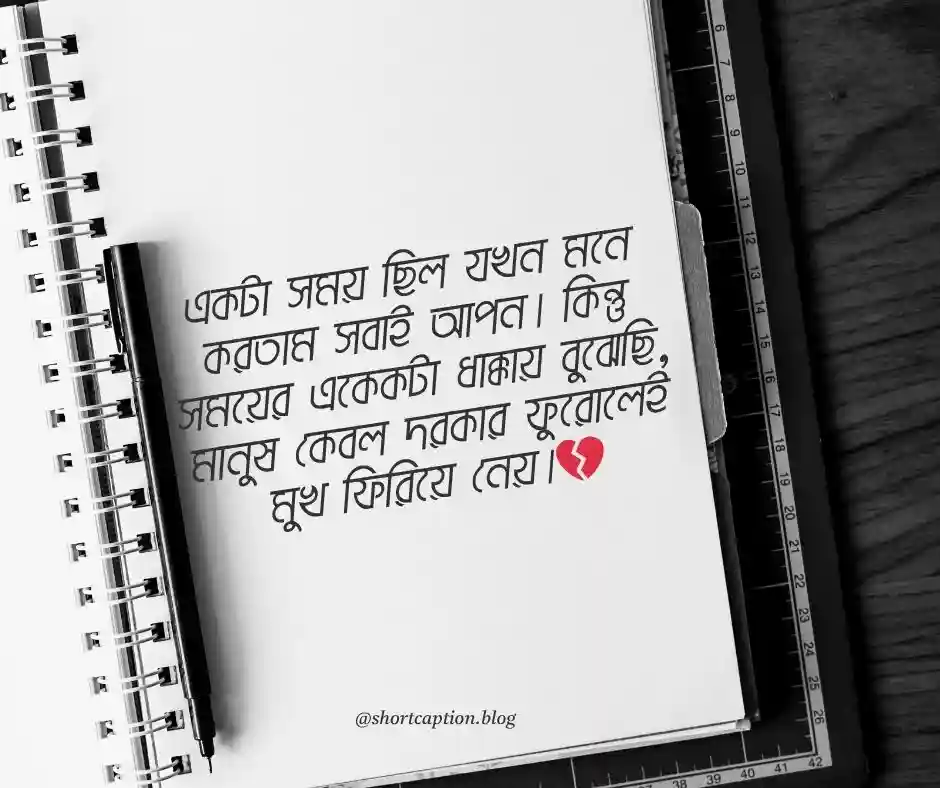 একটা সময় ছিল যখন মনে
করতাম সবাই আপন। কিন্তু
সময়ের একেকটা ধাক্কায় বুঝেছি,
মানুষ কেবল দরকার ফুরোলেই
মুখ ফিরিয়ে নেয়।💔
@shortcaption.blog
6
7
8
9
10
11
12
13
14
15
16
17
18
19
20
21
22
23
24
25
26
38 39 40 41 42